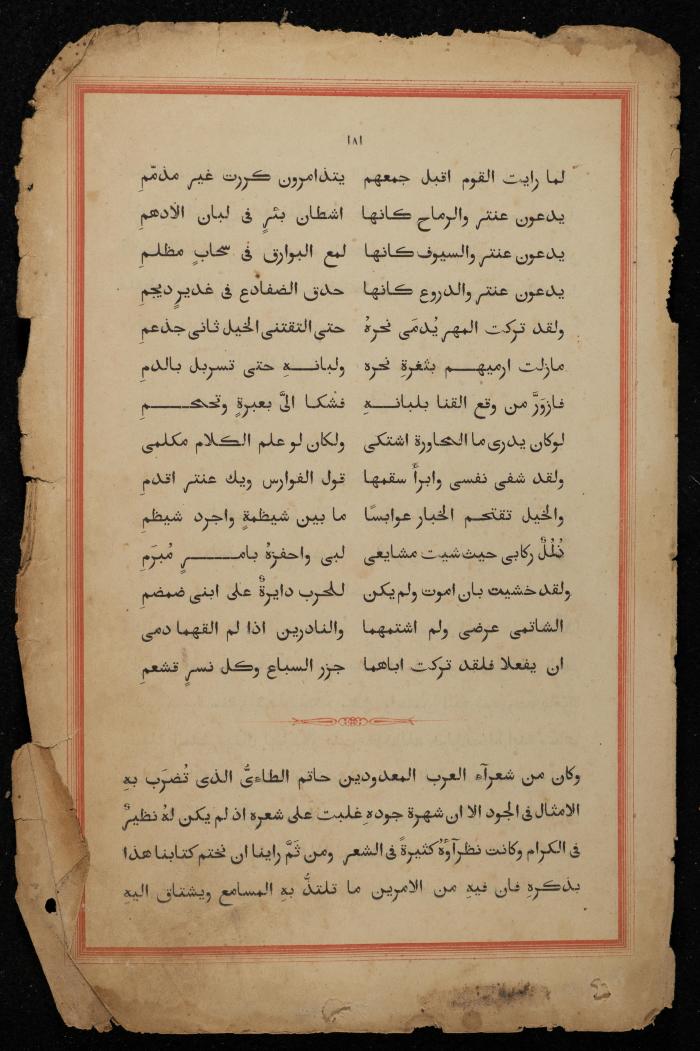 ١٨١
لما رايت القوم اقبل جمعهم يتذامرون كررت غير مذمّمِ
يدعون عنتر والرماح كانها اشطان بئرٍ فى لبان الادهمِ
يدعون عنتر والسيوف كانها لمع البوارق فى سحابٍ مظلمِ
يدعون عنتر والدروع كانها حدق الضفادع فى غديرٍ ديجمِ
ولقد تركت المهر يُدمَى نحرهُ حتى التقتنى الخيل ثانى جذعمِ
مازلت ارميهم بثغرةِ نحره ولبانهِ حتى تسربل بالدمِ
فازوَرَّ من وقع القنا بلبانهِ فشكا الىَّ بعبرةٍ وتحمحمِ
لوكان يدرى ما المحاورة اشتكى ولكان لو علم الكلام مكلمى
ولقد شفى نفسى وابرأَ سقمها قول الفوارس ويك عنتر اقدمِ
والخيل تقتحم الخبار عوابسًا ما بين شيظمةٍ واجرد شيظمِ
ذُلُلٌ ركابى حيث شيت مشايعى لبى واحفزهُ بامرٍ مُبرَمِ
ولقد خشيت بان اموت ولم يكن للحرب دايرةٌ على ابنى ضمضمِ
الشاتمى عرضى ولم اشتمهما والنادرين اذا لم القهما دمى
ان يفعلا فلقد تركت اباهما جزر السباع وكل نسرٍ قشعمِ
وكان من شعرآء العرب المعدودين حاتم الطاءىُّ الذى تُضرَب بهِ
الامثال فى الجود الا ان شهرة جودهِ غلبت على شعره اذ لم يكن لهُ نظيرٌ
فى الكرام وكانت نظرآؤهُ كثيرةً فى الشعر ومن ثَمَّ راينا ان نختم كتابنا هذا
بذكرهِ فان فيهِ من الامرين ما تلتذُّ بهِ المسامع ويشتاق اليهِ